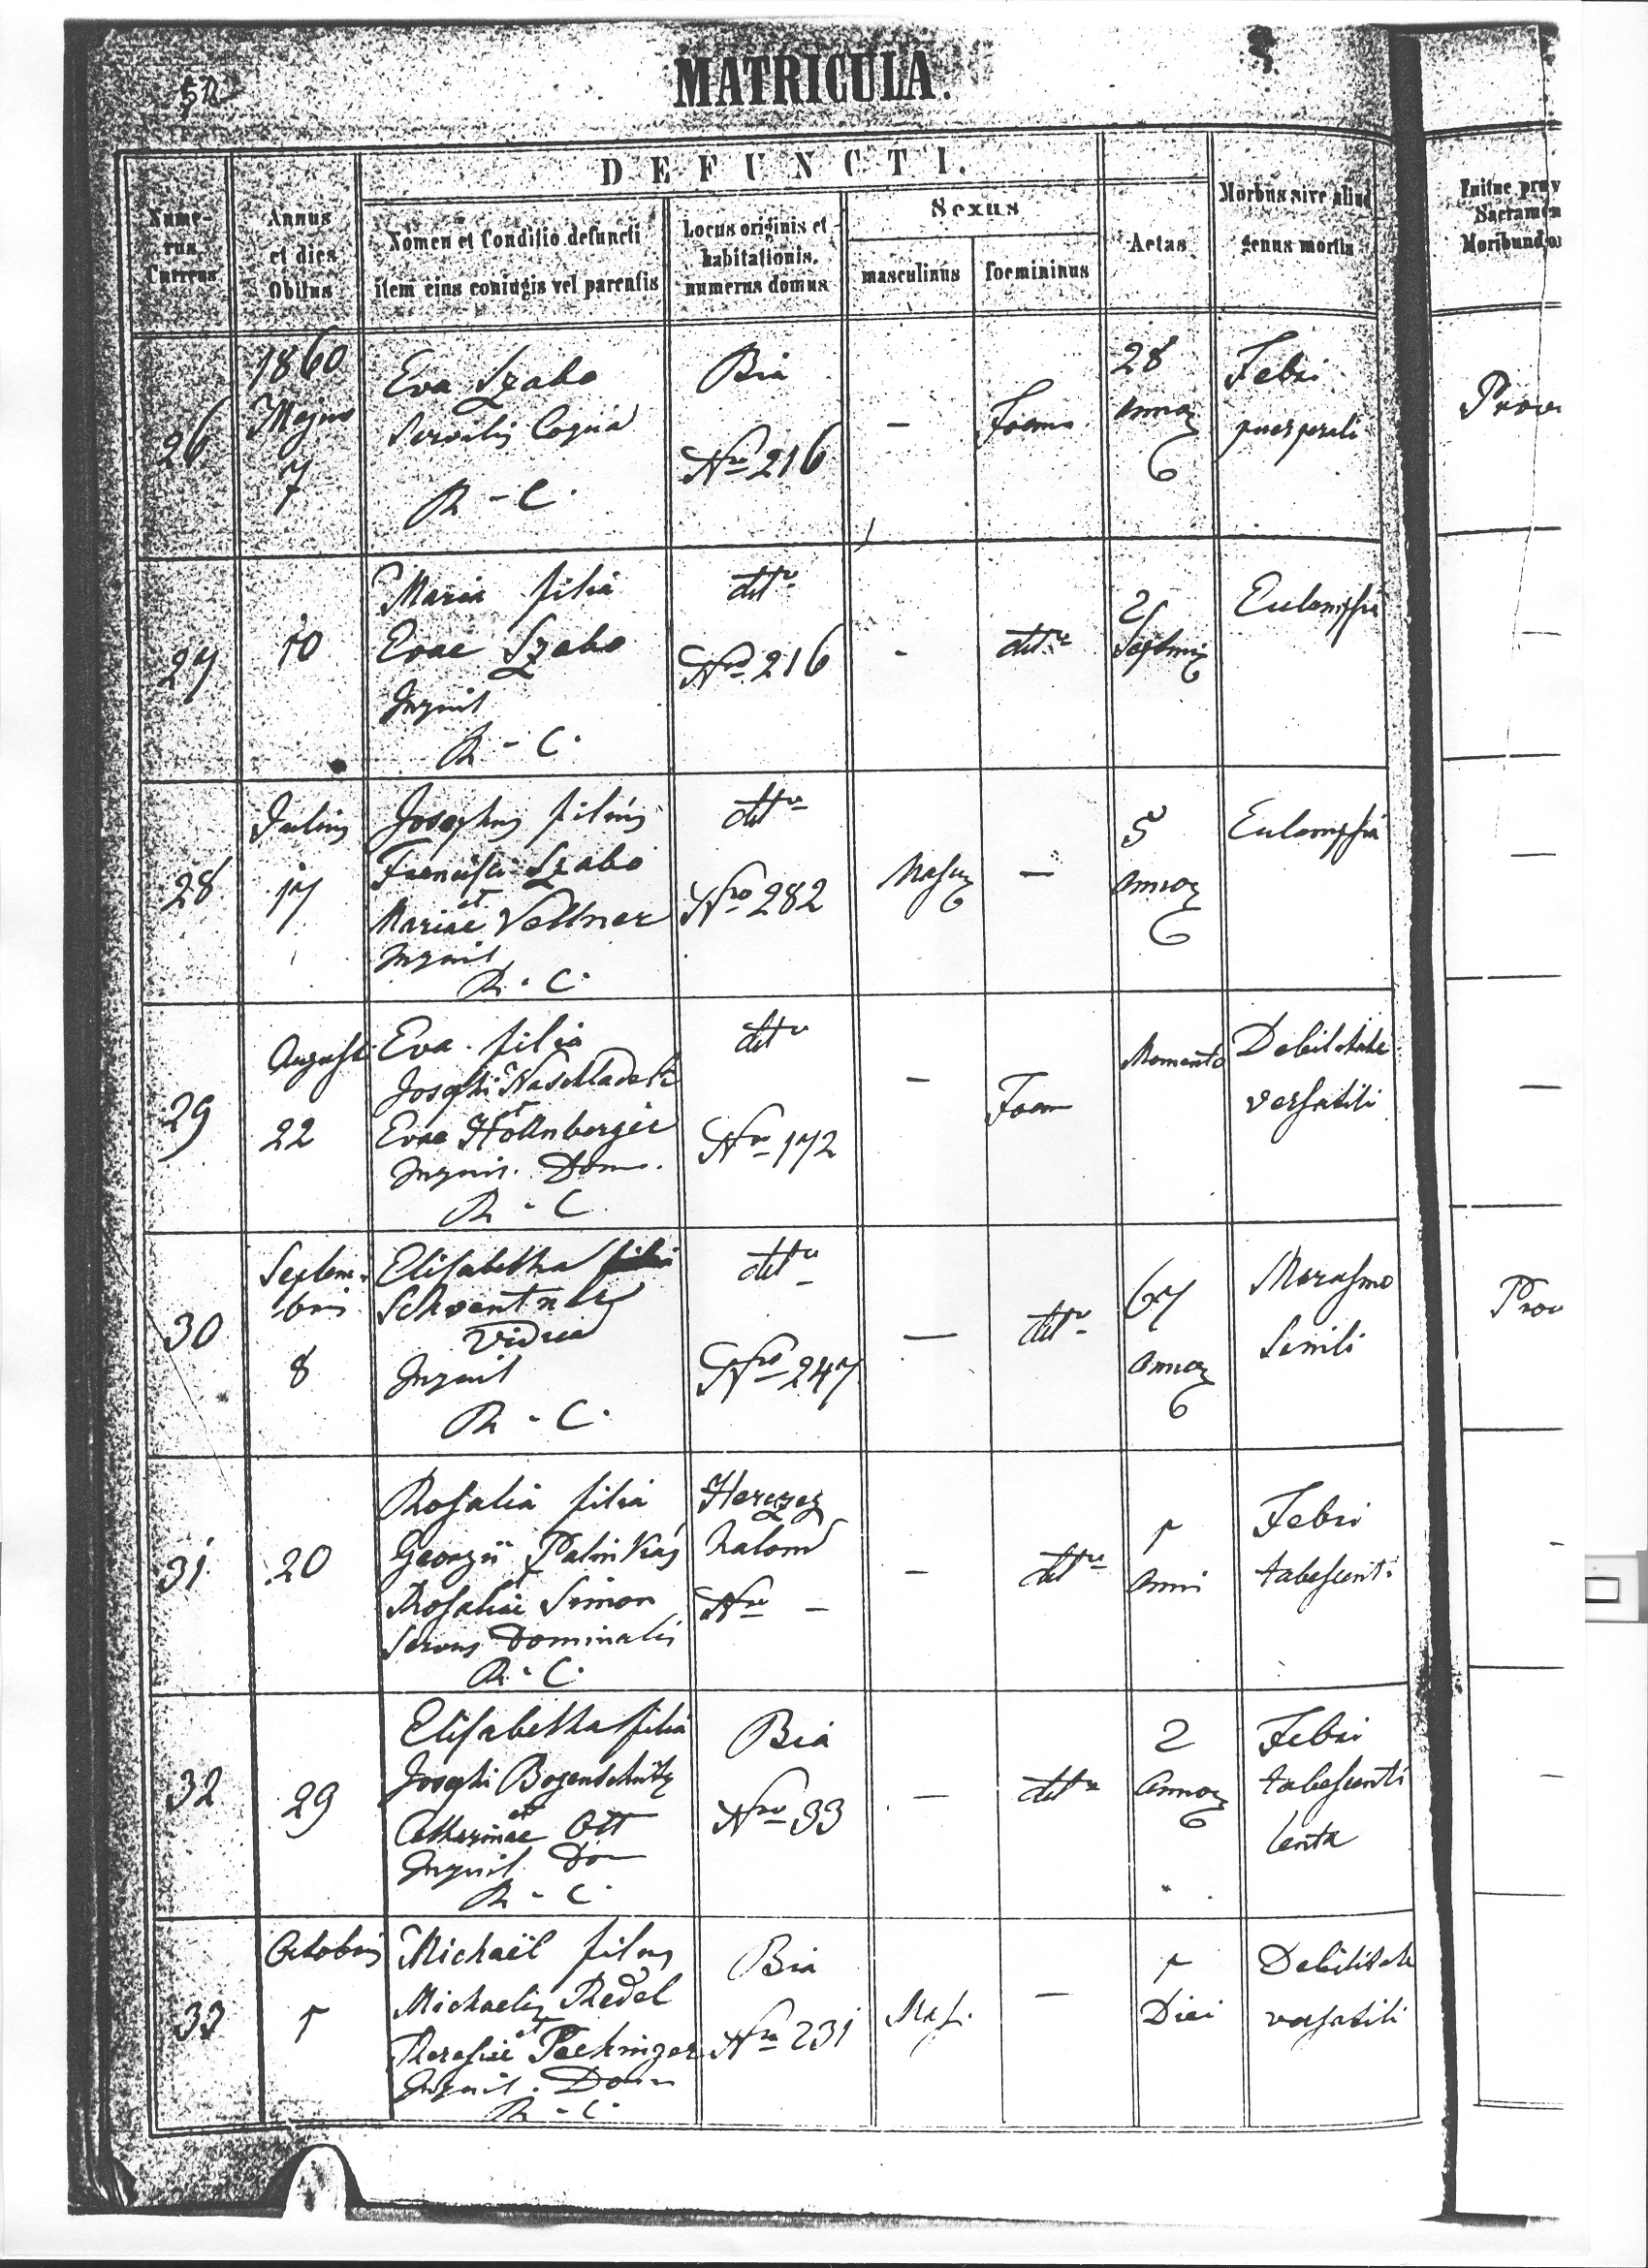 52
MATRICULA.
DEFUNCTI.
Nume-
rus
Currens
Annus
et dies
Obitus
Nomen et Conditio defuncti
item eius coniugis vel parentis
Locus originis et
habitationis,
numerus domus
Sexus
masculinus
foemininus
Aetas
Morbus sive aliud
genus mortis
Sacramen
26
1860
Majus
7
Eva Szabo
Servilis
R - C.
Bia
Nro 216
-
Foem.
28
annor
Febri
puerperali
Prov
27
10
Maria filia
Evae Szabo
Inquil
R - C.
dtto
Nro 216
-
dtto
2
Eclampsia
28
Julius
17
Josephus filius
Francisci Szabo
et
Mariae Veltner
Inquil
R - C.
dtto
Nro 282
Mascu
—
5
annor
Eclampsia
29
Augusti
22
Eva filia
Josephi
et
Evae
Inquil. Dom.
R - C.
dtto
Nro 172
-
Foem
Momento
Debilitate
versatili
30
Septem-
bris
8
Elisabetha filia
Schventner
Vidua
Inquil
R - C.
dtto
Nro 247
—
dtto
67
annor
Marasmo
Senili
Prov
31
20
Rosalia filia
Georgii Palinkás
et
Rosaliae Simon
Servus Dominalis
R - C.
Herczeg
halom
Nro -
-
dtto
1
anni
Febri
tabescenti
32
29
Elisabetha filia
Josephi Bogenschütz
et
Catharinae Ott
Inquil. Dom
R - C.
Bia
Nro 33
—
dtto
2
annor
Febri
tabescenti
lenta
33
Octobris
1
Michaël filius
Michaelis Redel
et
Theresiae
Inquil. Dom
R - C.
Bia
Nro 231
Mas.
—
1
Diei
Debilitate
versatili